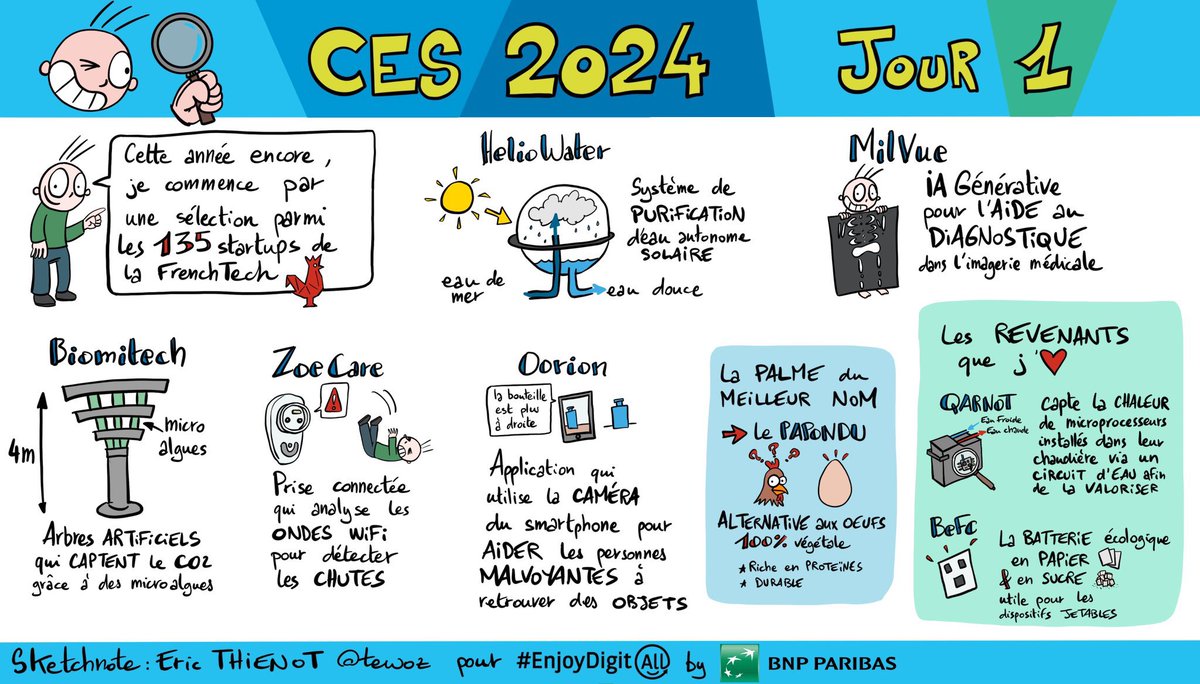 CES 2024
JOUR 1
Cette année encore,
je commence par
une sélection parmi
les 135 startups de
la FrenchTech
HelioWater
Système de
PURIFICATION
d'eau autonome
SOLAIRE
eau de
mer
eau douce
MilVue
iA Générative
pour l'AiDE au
DiAGNOSTIQUE
dans l'imagerie médicale
Biomitech
micro
algues
4m
Arbres ARTiFiCiELS
qui CAPTENT le CO2
grâce à des microalgues
ZoeCare
Prise connectée
qui analyse les
ONDES WiFi
pour détecter
les CHUTES
Oorion
la bouteille
est plus
à droite
Application qui
utilise la CAMÉRA
du smartphone pour
AiDER les personnes
MALVOYANTES à
retrouver des OBJETS
La PALME du
MEILLEUR NOM
le PAPONDU
? ? ?
ALTERNATIVE aux OEUFS
100% végétale
* Riche en PROTEÏNES
* DURABLE
Les REVENANTS
que j'
QARNOT
Eau froide
Eau chaude
capte la CHALEUR
de microprocesseurs
installés dans leur
chaudière via un
CIRCUIT D'EAU afin
de la VALORISER
BeFc
La BATTERIE écologique
en PAPIER
& en SUCRE
utile pour les
dispositifs JETABLES
Sketchnote : Eric THiENOT @tewoz pour #EnjoyDigitAll by BNP PARIBAS